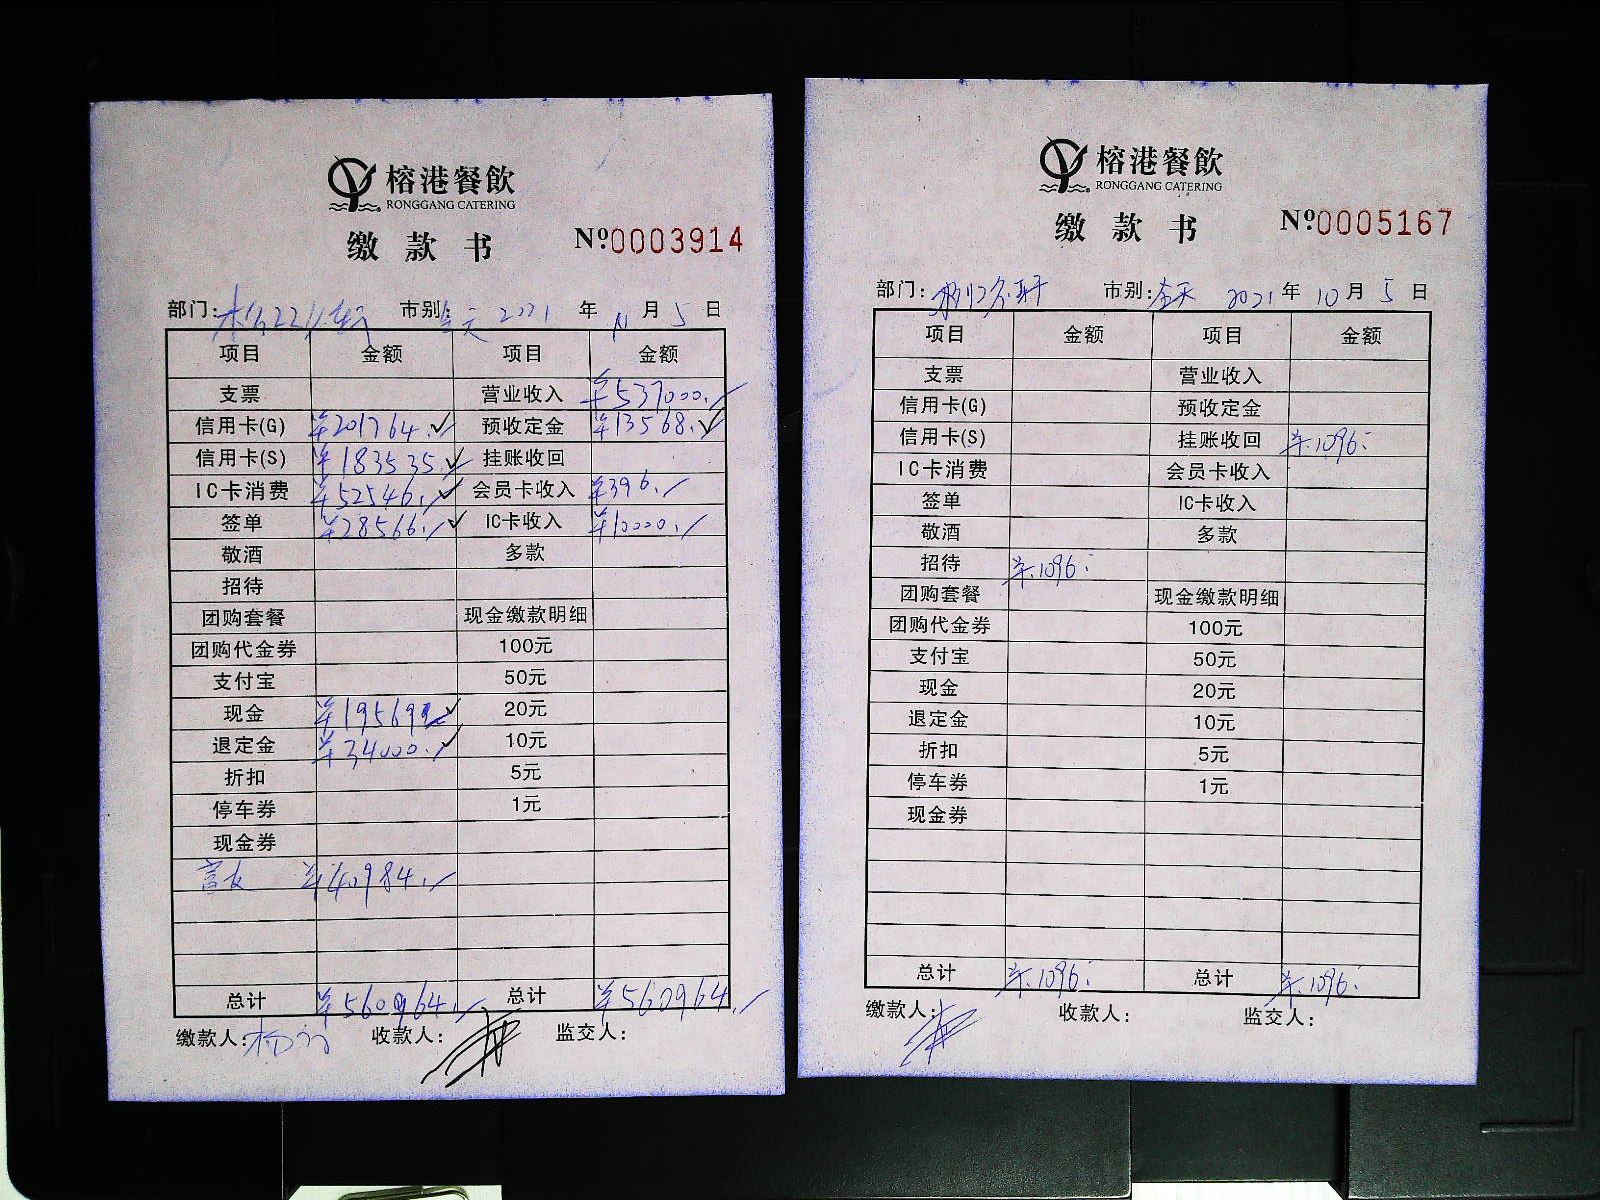 榕港餐飲
RONGGANG CATERING
缴款书 №0003914
部门: 市别: 全天 2021年 11月5日
项目 金额 项目 金额
支票 营业收入 ¥537000.
信用卡(G) ¥201764. 预收定金 ¥13568.
信用卡(S) ¥183535. 挂账收回
IC卡消费 ¥52546. 会员卡收入 ¥396.
签单 ¥28566. IC卡收入 ¥10000.
敬酒 多款
招待
团购套餐 现金缴款明细
团购代金券 100元
支付宝 50元
现金 ¥19569 20元
退定金 ¥34000. 10元
折扣 5元
停车券 1元
现金券
富友 ¥40984.
总计 ¥560964. 总计 ¥560964.
缴款人: 收款人: 监交人:
榕港餐飲
RONGGANG CATERING
缴款书 №0005167
部门: 市别: 全天 2021年10月5日
项目 金额 项目 金额
支票 营业收入
信用卡(G) 预收定金
信用卡(S) 挂账收回 ¥.1096.
IC卡消费 会员卡收入
签单 IC卡收入
敬酒 多款
招待 ¥.1096.
团购套餐 现金缴款明细
团购代金券 100元
支付宝 50元
现金 20元
退定金 10元
折扣 5元
停车券 1元
现金券
总计 ¥.1096. 总计 ¥.1096.
缴款人: 收款人: 监交人: